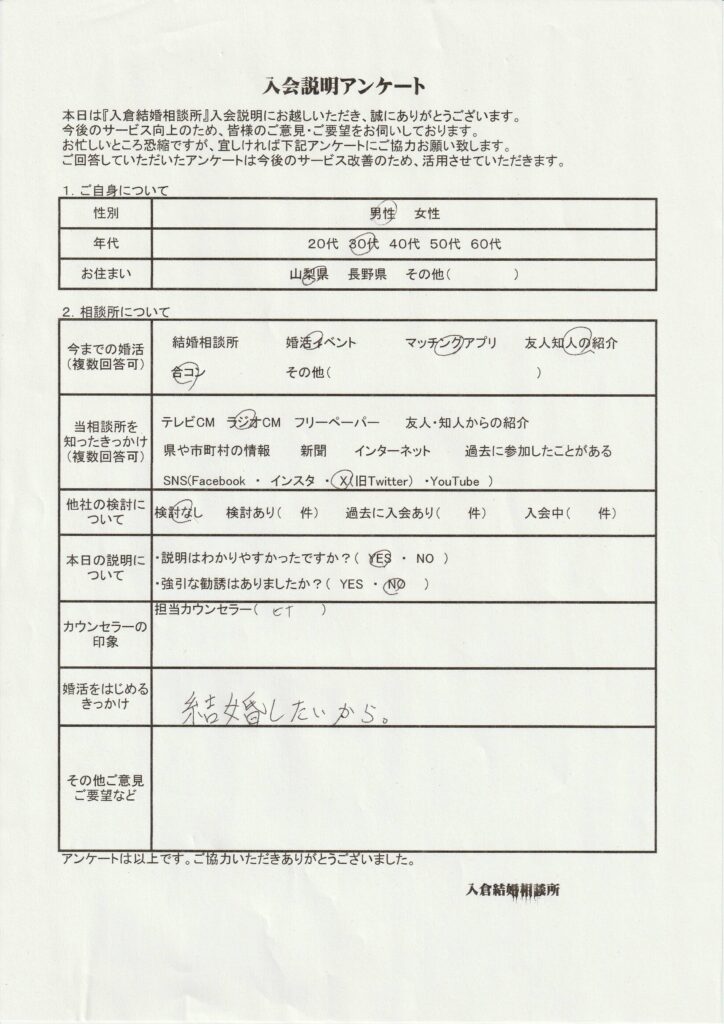 入会説明アンケート
本日は『入倉結婚相談所』入会説明にお越しいただき、誠にありがとうございます。
今後のサービス向上のため、皆様のご意見・ご要望をお伺いしております。
お忙しいところ恐縮ですが、宜しければ下記アンケートにご協力お願い致します。
ご回答していただいたアンケートは今後のサービス改善のため、活用させていただきます。
1. ご自身について
性別 男性 女性
年代 20代 30代 40代 50代 60代
お住まい 山梨県 長野県 その他( )
2. 相談所について
今までの婚活
(複数回答可)
結婚相談所 婚活イベント マッチングアプリ 友人知人の紹介
合コン その他( )
当相談所を
知ったきっかけ
(複数回答可)
テレビCM ラジオCM フリーペーパー 友人・知人からの紹介
県や市町村の情報 新聞 インターネット 過去に参加したことがある
SNS(Facebook ・ インスタ ・ X(旧Twitter) ・YouTube )
他社の検討に
ついて
検討なし 検討あり( 件) 過去に入会あり( 件) 入会中( 件)
本日の説明に
ついて
・説明はわかりやすかったですか？( YES ・ NO )
・強引な勧誘はありましたか？( YES ・ NO )
カウンセラーの
印象
担当カウンセラー( )
婚活をはじめる
きっかけ
結婚したいから。
その他ご意見
ご要望など
アンケートは以上です。ご協力いただきありがとうございました。
入倉結婚相談所